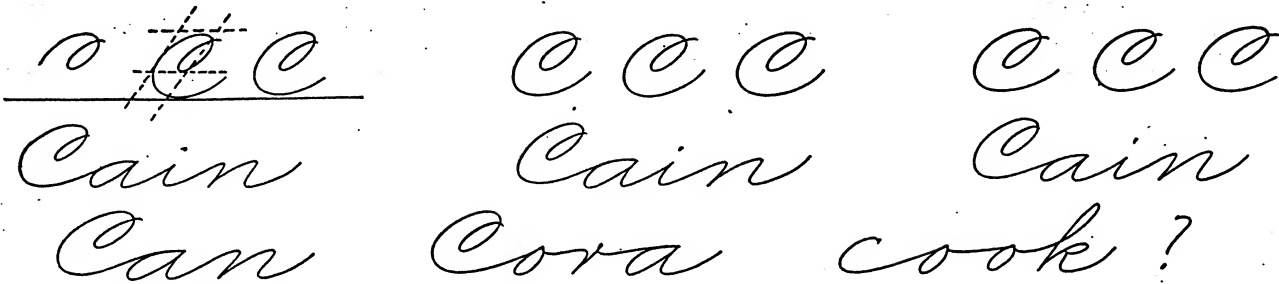 C C C C C C C C
Cain Cain Cain
Can Cora cook ?